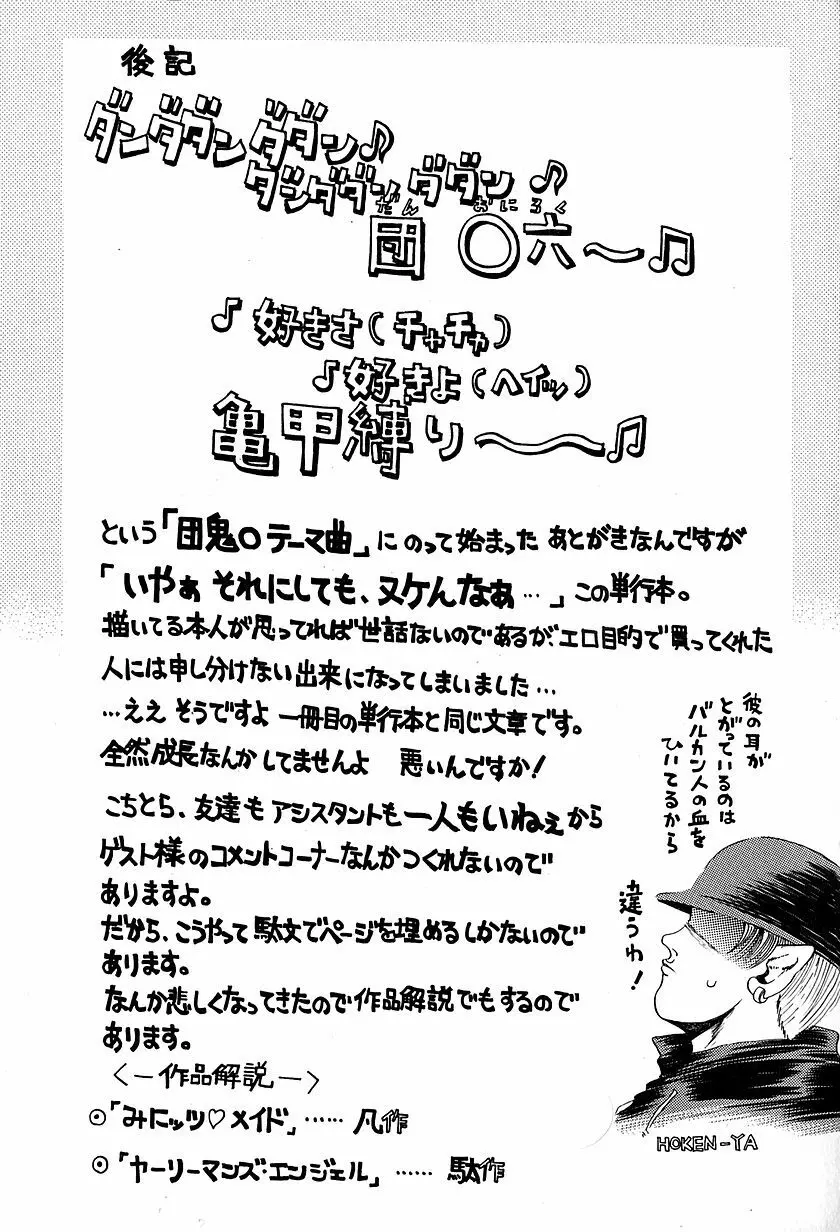 後記
ダンダダンダダン♪
ダンダダンダダン♪
だん おにろく
団〇六〜♫
♪好きさ(チャチャ)
♪好きよ(ヘイッ)
亀甲縛り〜♫
という「団鬼〇テーマ曲」にのって始まったあとがきなんですが
「いやぁ それにしても、ヌケんなぁ…」この単行本。
描いてる本人が思ってれば世話ないのであるが、エロ目的で買ってくれた
人には申し分けない出来になってしまいました…
…ええ そうですよ 一冊目の単行本と同じ文章です。
全然成長なんかしてませんよ 悪いんですか!
こちとら、友達もアシスタントも一人もいねぇから
ゲスト様のコメントコーナーなんかつくれないので
ありますよ。
だから、こうやって駄文でページを埋めるしかないので
あります。
なんか悲しくなってきたので作品解説でもするので
あります。
〈―作品解説―〉
◎「みにっツ♡メイド」……凡作
◎「ヤーリーマンズ・エンジェル」……駄作
彼の耳が
とがっているのは
バルカン人の血を
ひいてるから
違うわ!
HOKEN-YA